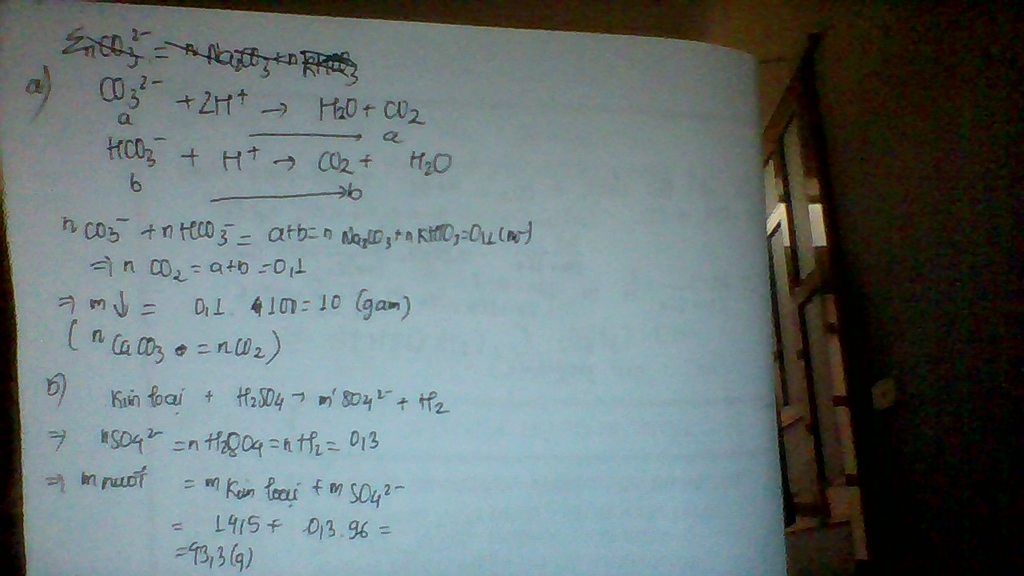 a) CO₃²⁻ + 2H⁺ → H₂O + CO₂
a → a
HCO₃⁻ + H⁺ → CO₂ + H₂O
b → b
nCO₃⁻ + nHCO₃⁻ = a+b = n Na₂CO₃ + n KHCO₃ = 0,1 (mol)
⇒ n CO₂ = a+b = 0,1
⇒ m↓ = 0,1 . 100 = 10 (gam)
(n CaCO₃ = nCO₂)
b) Kim loại + H₂SO₄ → m' SO₄²⁻ + H₂
⇒ nSO₄²⁻ = nH₂SO₄ = nH₂ = 0,3
⇒ m muối = m Kim loại + m SO₄²⁻
= 14,5 + 0,3.96 =
= 43,3 (g)